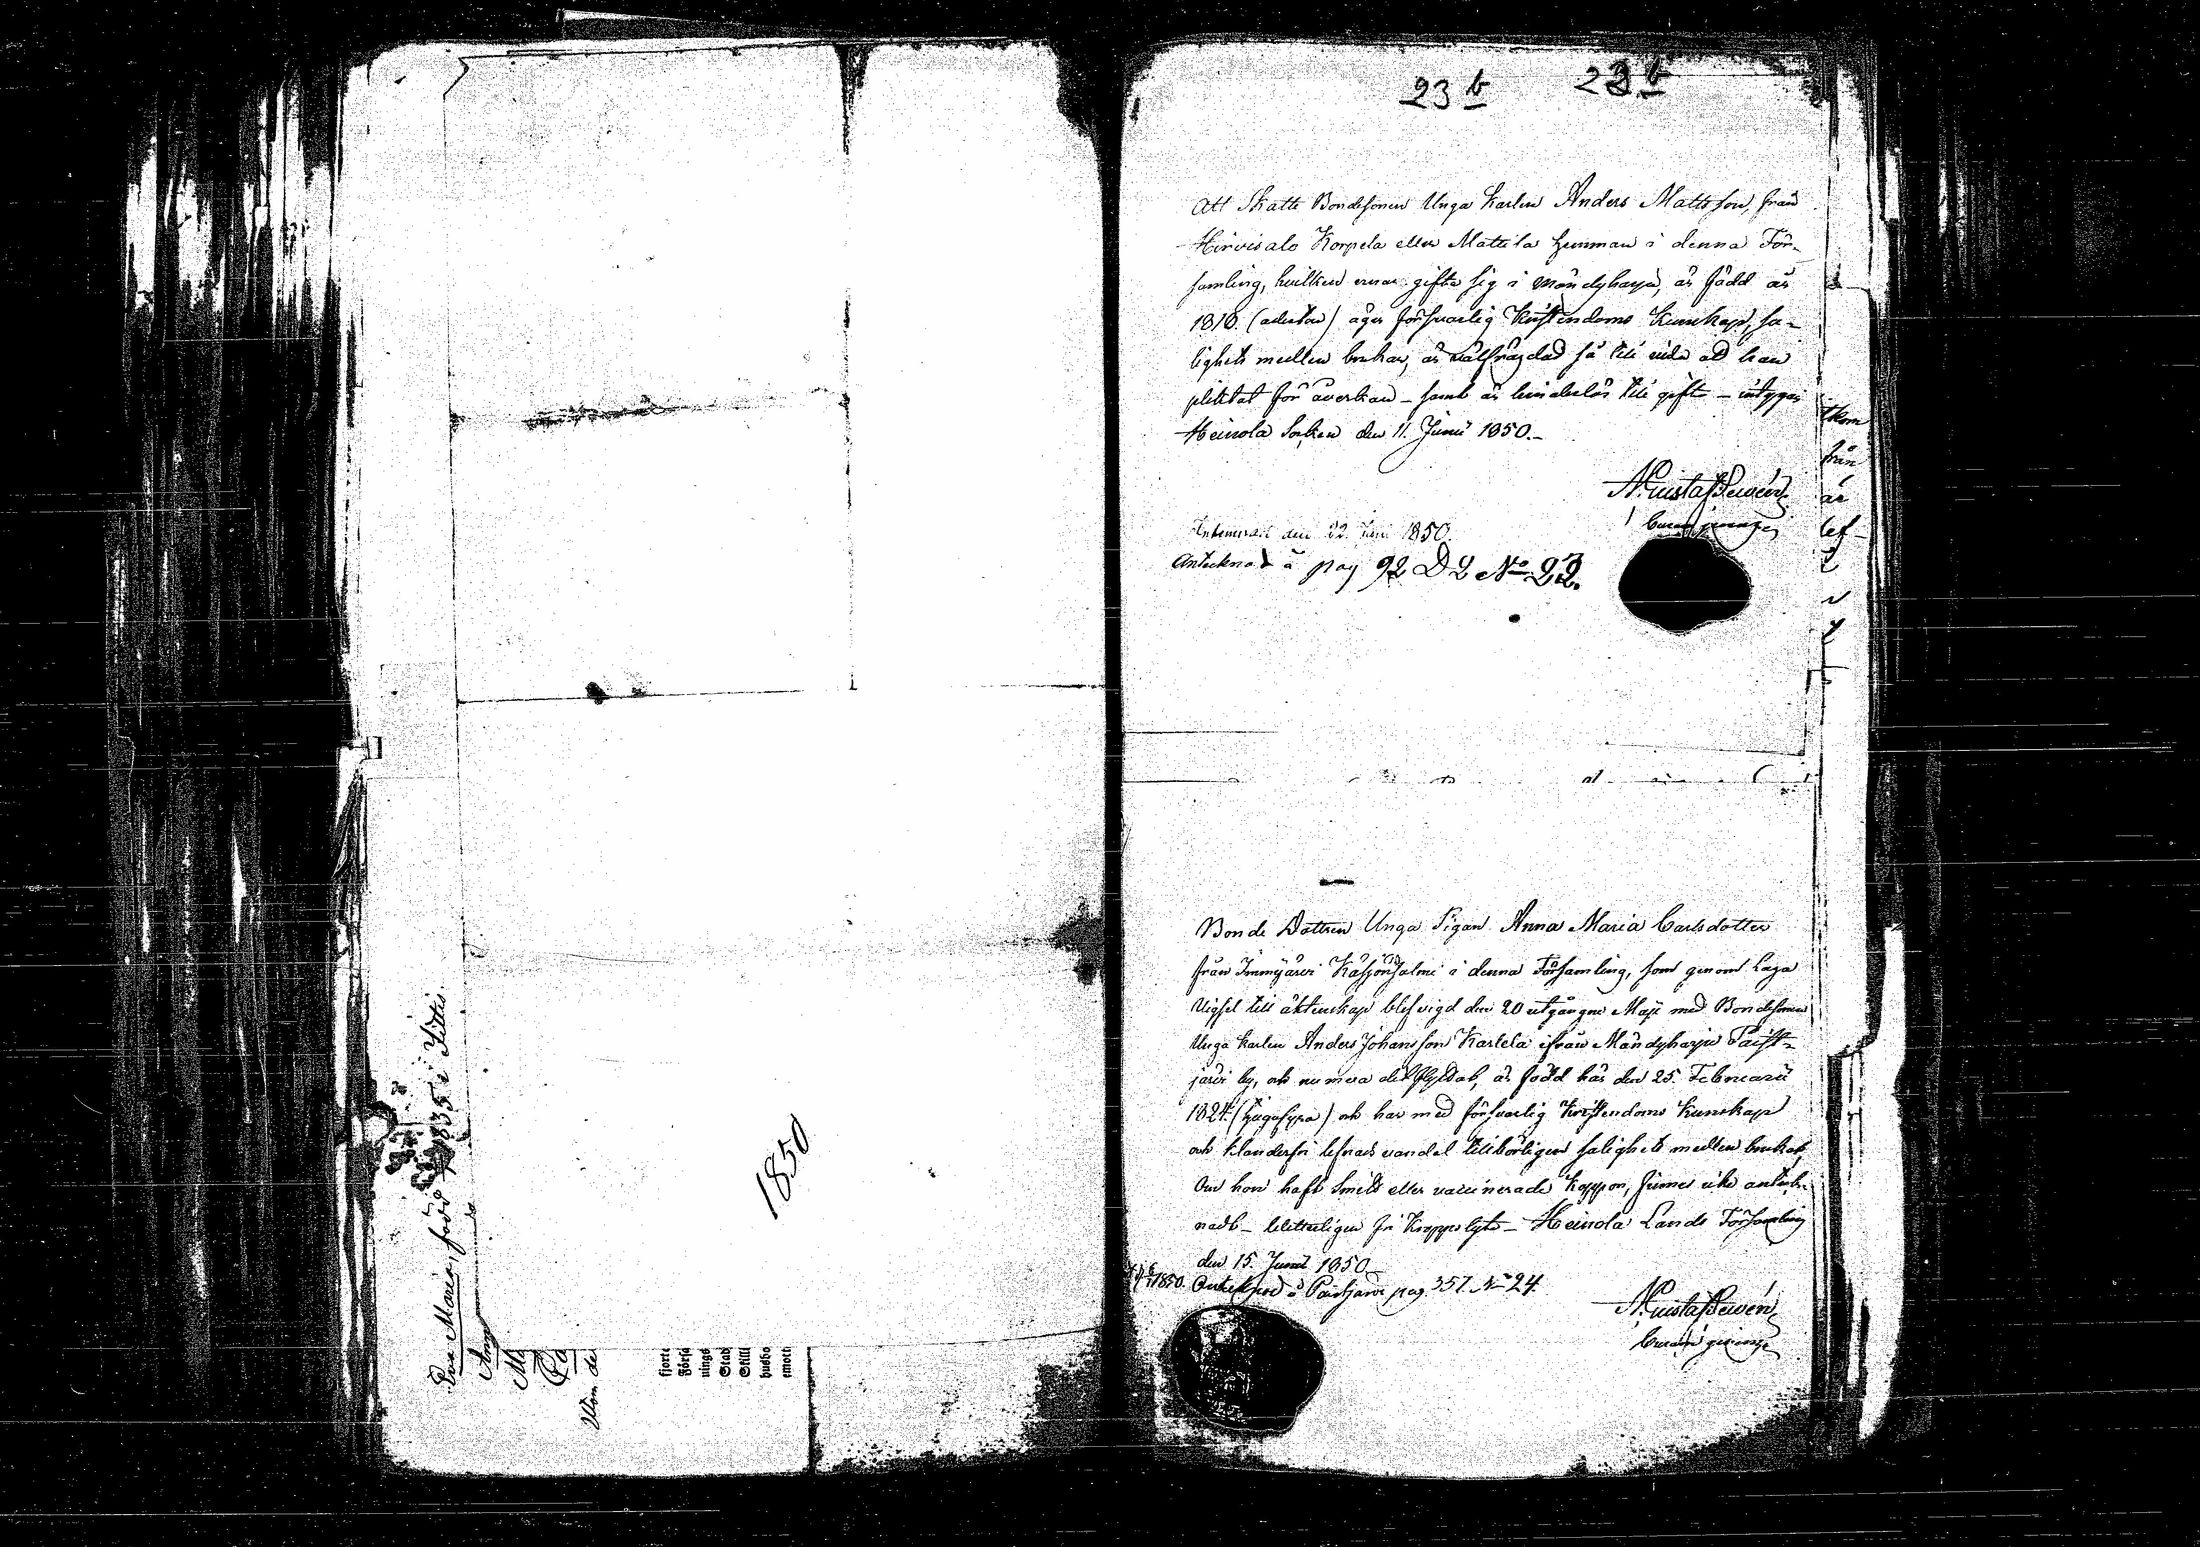 23 b 23 b
Att Skatte Bondesonen Unga Karlen Anders Mattsson, från
Hirvisalo Korpela eller Mattila hemman i denna För-
samling, hvilken ernar gifta sig i Mändyharju, är född år
1818 (aderton) äger försvarlig Kristendoms Kunskap, sa-
lighets medlen brukar, är välfrägdad så till vida att han
pliktat för åverkan – samt är hinderlös till gifte – intygar
Heinola Socken den 11. Junii 1850.–
N. Gustaf Dewén
Inlemnad den 22. Juni 1850.
Antecknad å pag 92 D 2 No 22.
tkom
från
är
lef-
Bonde Dottren Unga Pigan Anna Maria Carlsdotter
från Immjärvi i denna Församling, som genom Laga
Vigsel till äktenskap blef vigd den 20 utgångne Maji med Bondesonen
Unga Karlen Anders Johansson Karlela ifrån Mändyharju Paist-
järvi by, och numera dit flyttat, är född här den 25. Februarii
1824. (tjugufyra) och har med försvarlig Kristendoms Kunskap
och klanderfri lefnads vandel tillbörligen salighets medlen brukat,
Om hon haft Smitt eller vaccinerade Koppor, finnes icke anteck-
nadt – fri Kropps lyte – Heinola Lands Församling
den 15. Junii 1850.–
1850. Antecknad å Paistjärvi pag. 357. No 24.
N. Gustaf Dewén
1850
Eva Maria, född 1835 i Sittis.
Ann
fjort
Förs
nings
Stad
Still
husbo
emott